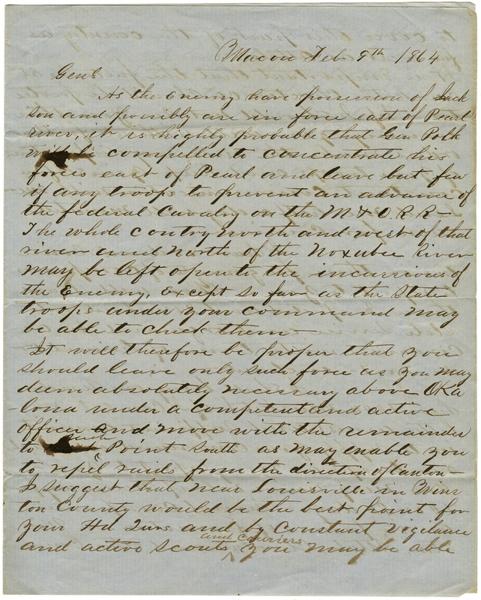 Macon Feb 9th 1864
Genl
As the enemy have possession of Jack
son and possibly are in force east of Pearl
river, it is highly probable that Gen Polk
will be compelled to concentrate his
forces east of Pearl and leave but few
if any troops to prevent an advance of
the federal Cavalry on the M & O R R—
The whole contry north and west of that
river and North of the Noxubee River
may be left open to the incursions of
the Enemy, except so far as the State
troops under your command may
be able to check them—
It will therefore be proper that you
should leave only such force as you may
deem absolutely necessary above Oka
-lona under a competent and active
officer and move with the remainder
to such Point South as may enable you
to repel raids from the direction of Canton—
I suggest that near Louisville in Wins
ton County would be the best point for
your Hd Qurs and by Constant Vigilance
and active scouts and couriers you may be able